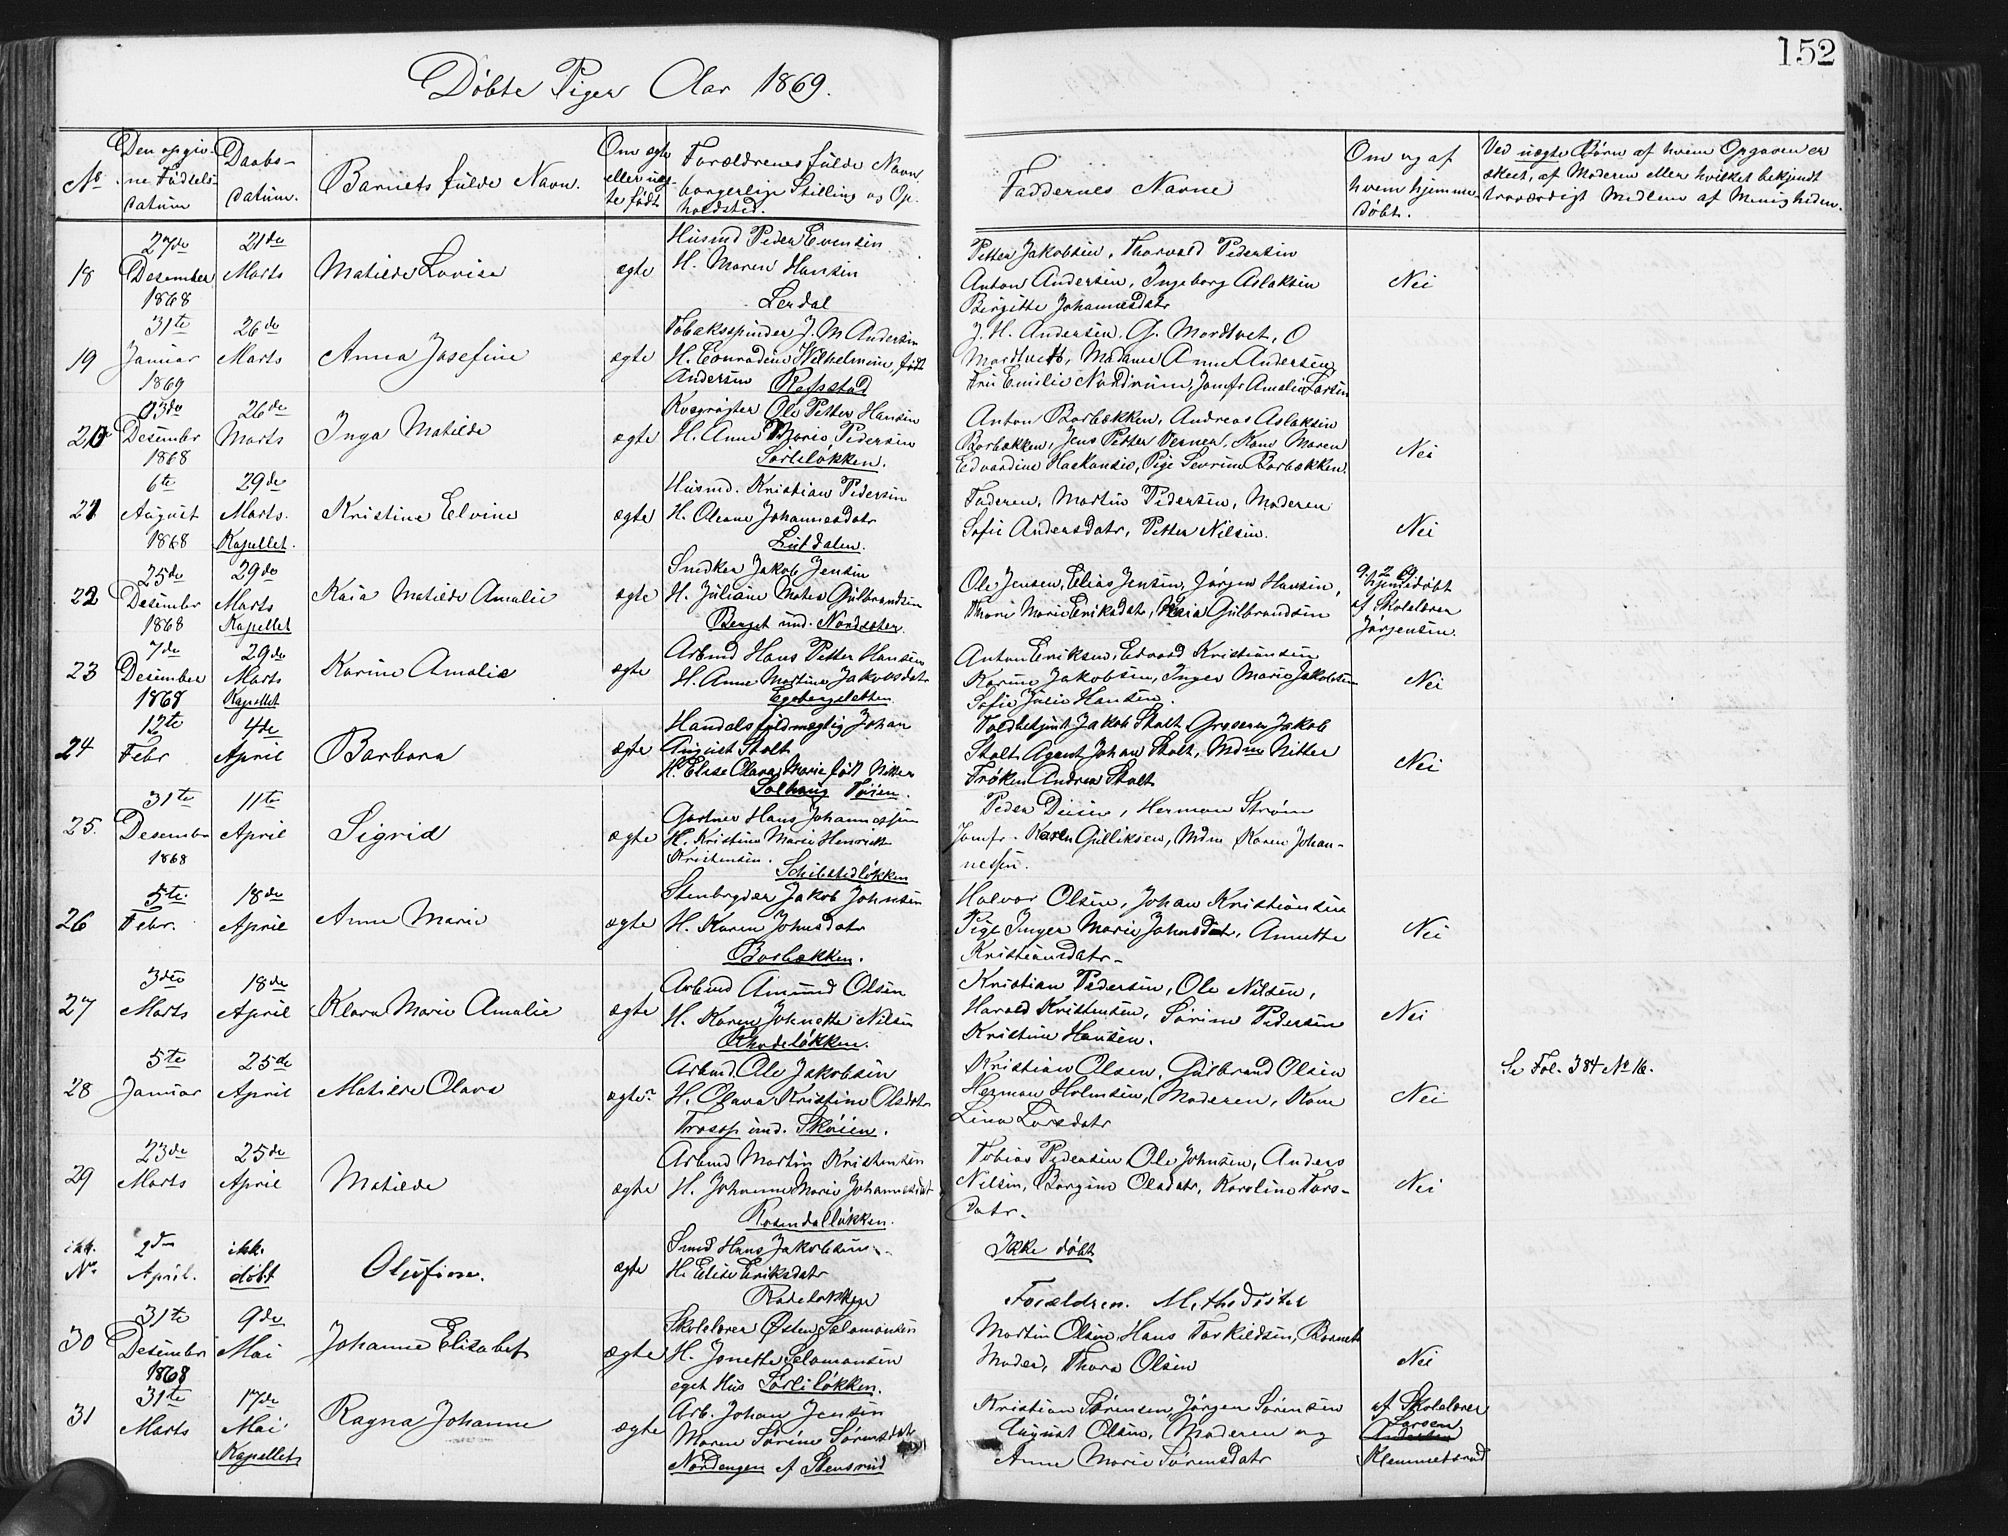 152
Døbte Piger Aar 1869.
No
Den opgiv-
ne Fødsels-
datum
Daabs-
datum.
Barnets fulde Navn.
Om ægte
eller uæg-
te født
Forældrenes fulde Navn
borgerlige Stilling og Op-
holdsted.
Faddernes Navne
Om og af
hvem hjemme-
døbt.
Ved uægte Børn af hvem Opgaven er
skeet, af Moderen eller hvilket bekjendt
troværdigt Medlem af Menigheden.
18
27de
Desember
1868
21de
Marts
Matilde Lovise
ægte
Husmd Peder Evensen
H. Maren Hansen
Lerdal
Petter Jakobsen, Thorvald Pedersen
Anton Andersen, Ingeborg Aslaksen
Birgitte Johannesdatr
Nei
19
31te
Januar
1869
26de
Marts
Anna Josefine
ægte
Tobaksspinder J. M Andersen
H. Conradine Wilhelmine, født
Andersen
J. H. Andersen, G. Mordtvet, O
Mordtvedt, Madame Anne Andersen,
Fru Emilie Noddrum, Jomfr Amalie Larsen
20
23de
Desembr
1868
26de
Marts
Inga Matilde
ægte
Kvægrøgter Ole Petter Hansen
H. Anne Marie Pedersen
Sorteløkken.
Anton Borbækken, Andreas Aslaksen
Borbækken, Jens Petter Verner, Kone Maren
Edvardine Haakensen, Pige Severine Borbækken.
Nei
21
6te
August
1868
29de
Marts.
Kapellet.
Kristine Elvine
ægte
Husmd. Kristian Pedersen
H. Oleane Johannesdatr
Lutdalen.
Faderen, Martin Pedersen, Moderen
Sofie Andersdatr, Petter Nilsen.
Nei
22
25de
Desembr
1868
29de
Marts
Kapellet
Kaia Matilde Amalie
ægte
Snedker Jakob Jensen
H. Juliane Matea Gulbrandsen
Berget und. Nordseter.
Ole Jensen, Elias Jensen, Jørgen Hansen,
Thore Marie Eriksdatr, Maria Gulbrandsen
hjemmedøbt
af Skolelærer
Jørgensen.
23
7de
Desember
1868
29de
Marts
Kapellet
Karine Amalie
ægte
Arbmd Hans Petter Hansen
H. Anne Martine Jakobsdatr
Egebergsletten
Anton Eriksen, Edvard Kristiansen
Karine Jakobsen, Inger Marie Jakobsen
Sofie Julie Hansen.
Nei
24
12te
Febr
4de
April
Barbara
ægte
Handelsfuldmægtig Johan
August Stolt
H. Elise Olava Marie født Nitter
Solhaug Tøien.
Toldbetjent Jakob Stolt, Grosserer Jakob
Stolt, Agent Johan Stolt, Mdm Nitter
Frøken Andrea Stolt
Nei
25.
31te
Desembr
1868
11te
April
Sigrid
ægte
Gartner Hans Johannessen
H. Kristine Marie Henriette
Kristensen.
Schibstedløkken
Peder Diesen, Herman Strøm
Jomfr. Karen Gulliksen, Mdm Karen Johan-
nessen.
26
5te.
Febr.
18de
April
Anne Marie
ægte
Stenbryder Jakob Johnsen
H. Karen Johnsdatr
Borbækken.
Halvor Olsen, Johan Kristiansen
Pige Inger Marie Johnsdatr, Annette
Kristiansdatr.
Nei
27
3die
Marts
18de
April
Klara Marie Amalie
ægte
Arbmd Amund Olsen
H. Karen Johnette Nilsen
Rhodeløkken.
Kristian Pedersen, Ole Nilsen,
Harald Kristensen, Sørine Pedersen
Kristine Hansen.
Nei
28
5te
Januar
25de
April
Matilde Olava
ægte.
Arbmd. Ole Jakobsen
H. Olava Kristine Olsdatr
Trosop und. Skøien.
Kristian Olsen, Gulbrand Olsen
Herman Holmsen, Moderen, Kone
Lina Larsdatr
Nei
Se Fol. 384 No 16.
29
23de
Marts
25de
April
Matilde
ægte
Arbmd Martin Kristensen
H. Johanne Marie Johannesdatr
Rosendalløkken.
Tobias Pedersen Ole Johnsen, Anders
Nilsen, Bergine Olsdatr, Karoline Lars-
datr.
Nei
ikk.
No
2den
April.
ikk.
døbt
Olufine.
ægte
Smed Hans Jakobsen
H. Elise Eriksdatr
Rodeløkken
Ikke døbt
Forældren. Methodister
30
31te
Desembr
1868
9de
Mai
Johanne Elisabet
ægte
Skolelærer Østen Salomonsen
H. Jonette Salomonsen
eget Hus Sorliløkken.
Martin Olsen, Hans Torkildsen, Barnets
Moder, Thora Olsen
Nei
31
31te
Marts
17de
Mai
Kapellet
Ragna Johanne
ægte
Arb. Johan Jensen
Maren Sørine Sørensdatr
Nordengen af Stensrud
Kristian Sørensen Jørgen Sørensen
August Olsen, Moderen og
Anne Marie Sørensdatr
af Skolelærer
Larsen
Klemmetsrud